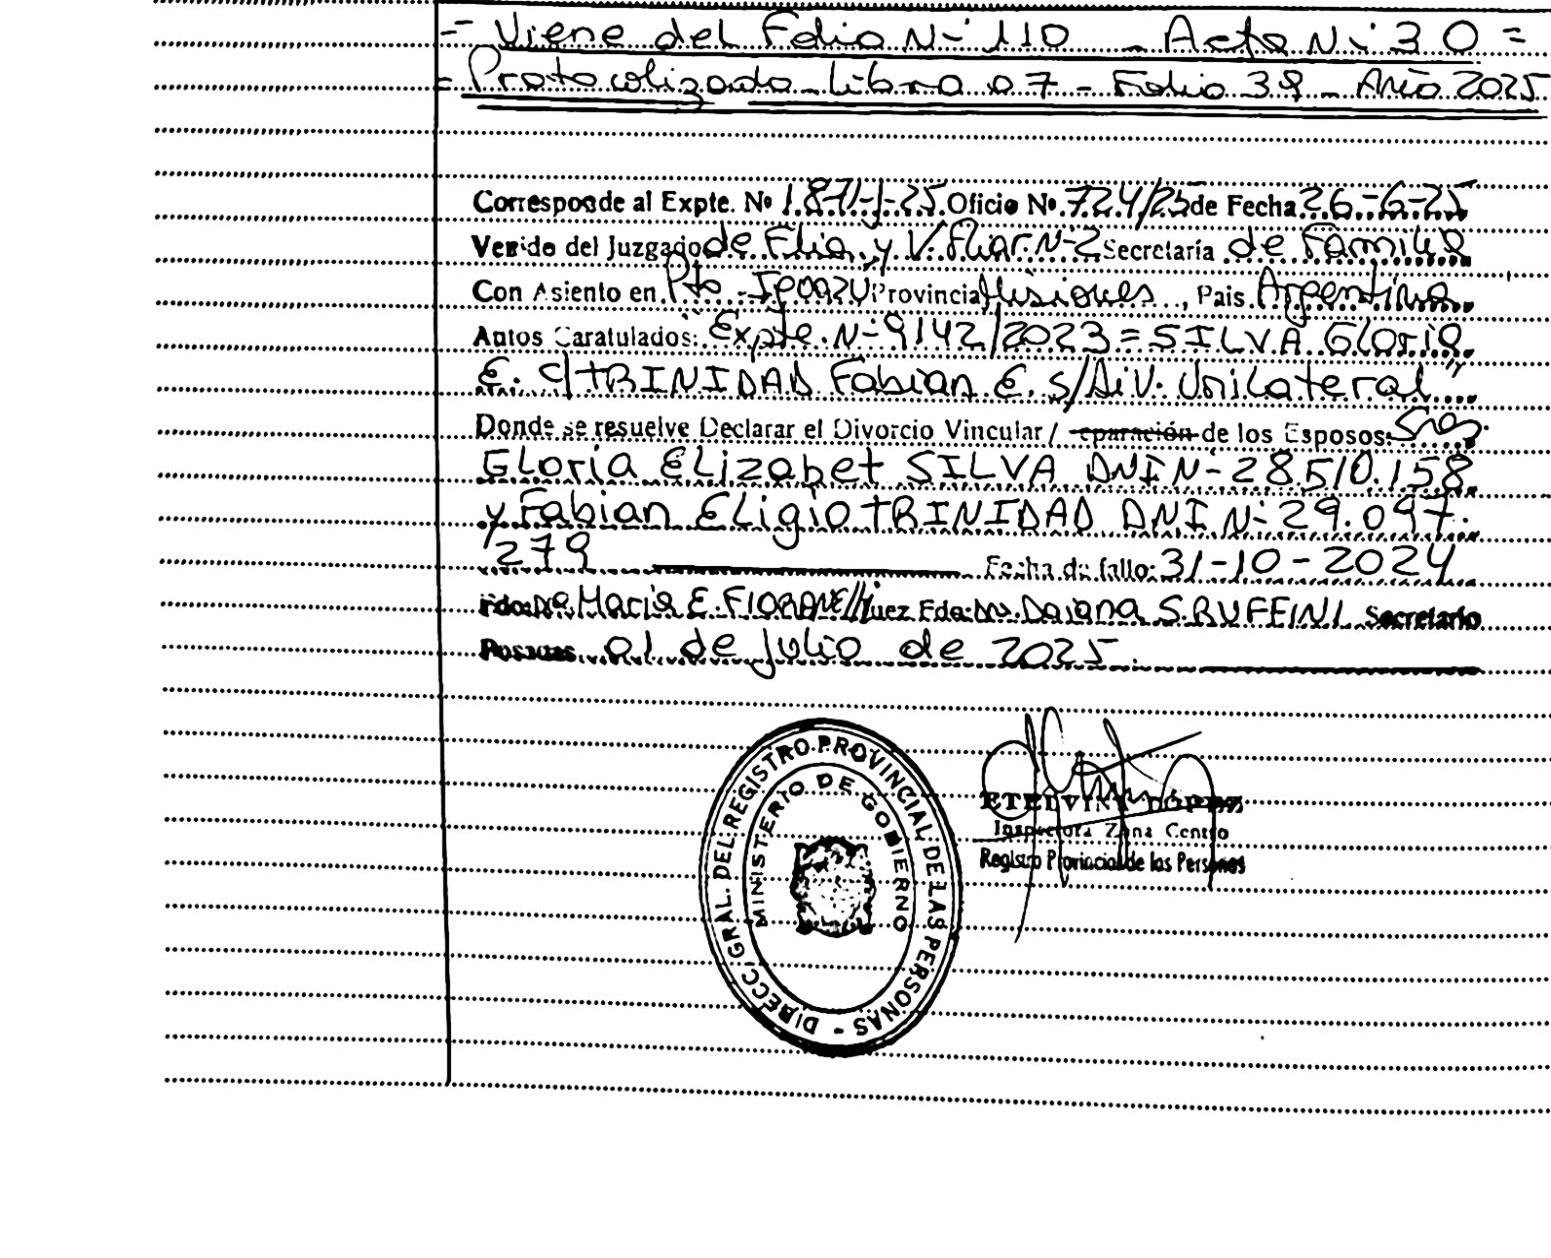 = Viene del Folio N° 110 - Acta N° 30 =
= Protocolizado - Libro 07 - Folio 38 - Año 2025
Corresponde al Expte. Nº 1.871-J-25 Oficio Nº 724/25 de Fecha 26-6-25
Venido del Juzgado de Flia. y V. Fliar. N-2 Secretaría de Familia
Con Asiento en Pto - Iguazú Provincia Misiones, Pais Argentina
Autos Caratulados: "Expte. N° 9142/2023 = SILVA Gloria
E. c/ TRINIDAD Fabian E. s/Div. Unilateral"
Donde se resuelve Declarar el Divorcio Vincular / eparación de los Esposos: Sres.
Gloria Elizabet SILVA DNI N- 28.510.158
y Fabian Eligio TRINIDAD DNI N° 29.097.
279 Fecha de fallo: 31-10-2024
Fdo: Dra Maria E. FIORANELLI Juez Fdo: Dra. Daiana S. RUFFINI Secretario
Posadas 01 de julio de 2025.
DIRECC. GRAL. DEL REGISTRO PROVINCIAL DE LAS PERSONAS -
MINISTERIO DE GOBIERNO
ETELVINA LOPEZ
Inspectora Zona Centro
Registro Provincial de las Personas